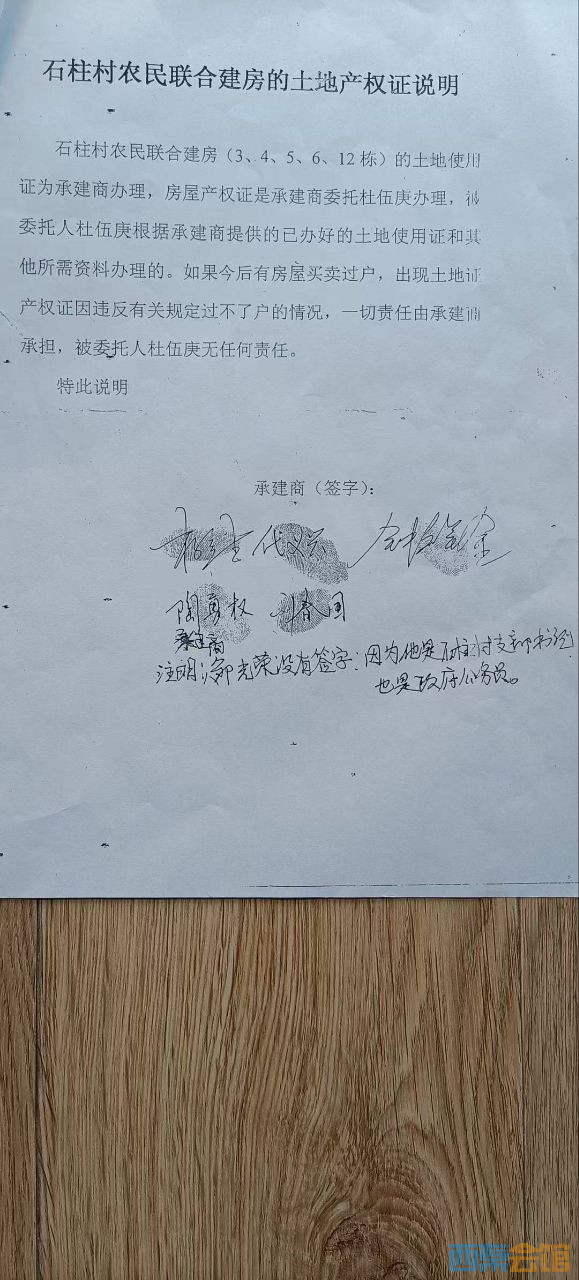 石柱村农民联合建房的土地产权证说明
石柱村农民联合建房（3、4、5、6、12栋）的土地使用
证为承建商办理，房屋产权证是承建商委托杜伍庚办理，被
委托人杜伍庚根据承建商提供的已办好的土地使用证和其
他所需资料办理的。如果今后有房屋买卖过户，出现土地证
产权证因违反有关规定过不了户的情况，一切责任由承建商
承担，被委托人杜伍庚无任何责任。
特此说明
承建商（签字）：
代义兴
陶勇权 春国
承建商
注明：郭光荣没有签字：因为他是石柱村支部书记
也是政府公务员。
西泵会馆